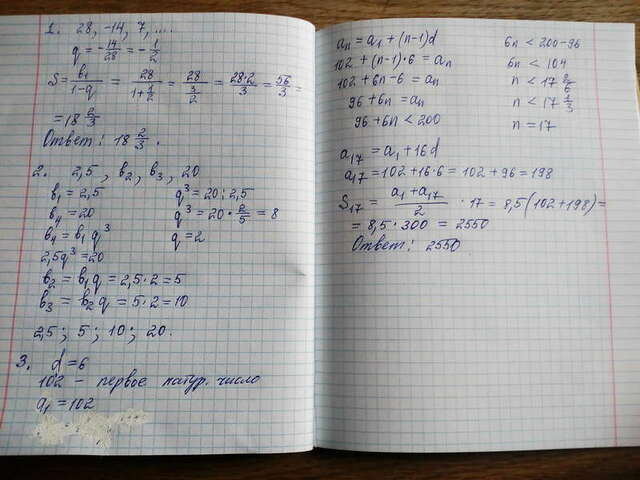 1. 28, -14, 7, ....
q = -14/28 = -1/2
S = b₁/(1-q) = 28/(1+1/2) = 28/(3/2) = 28·2/3 = 56/3 =
= 18 2/3
Ответ: 18 2/3.
2. 2,5, b₂, b₃, 20
b₁ = 2,5 q³ = 20 : 2,5
b₄ = 20 q³ = 20 · 2/5 = 8
b₄ = b₁q³ q = 2
2,5q³ = 20
b₂ = b₁q = 2,5 · 2 = 5
b₃ = b₂q = 5 · 2 = 10
2,5; 5; 10; 20.
3. d = 6
102 – первое натур. число
a₁ = 102
aₙ = a₁ + (n-1)d
102 + (n-1)·6 = aₙ
102 + 6n - 6 = aₙ
96 + 6n = aₙ
96 + 6n < 200
6n < 200 - 96
6n < 104
n < 17 2/6
n < 17 1/3
n = 17
a₁₇ = a₁ + 16d
a₁₇ = 102 + 16·6 = 102 + 96 = 198
S₁₇ = (a₁ + a₁₇)/2 · 17 = 8,5(102 + 198) =
= 8,5 · 300 = 2550
Ответ: 2550